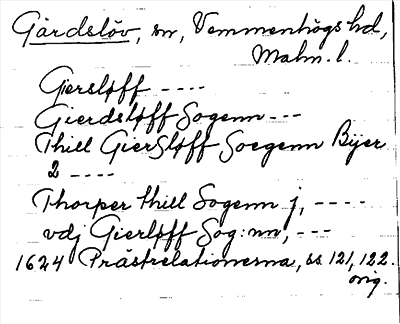 Gärdslöv, sn, Vemmenhögs hd,
Malm. l.
Giersløff ----
Gierdsløff Sogenn ---
Thill Giersløff Soegenn Byer
2 ----
Thorper thill Sogenn j, ----
vdj Gierløff Sog:nn, ---
1624 Prästrelationerna, ss 121, 122.
orig.